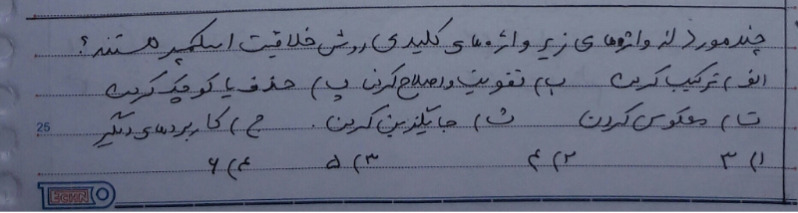 چند مورد از واژه‌های زیر واژه‌های کلیدی روش خلاقیت اسکمپر هستند؟
الف) ترکیب کردن ب) تقویت و اصلاح کردن پ) حذف یا کوچک کردن
ت) معکوس کردن ث) جایگزین کردن. ج) کاربردهای دیگر
25
۱) ۳ ۲) ۴ ۳) ۵ ۴) ۶